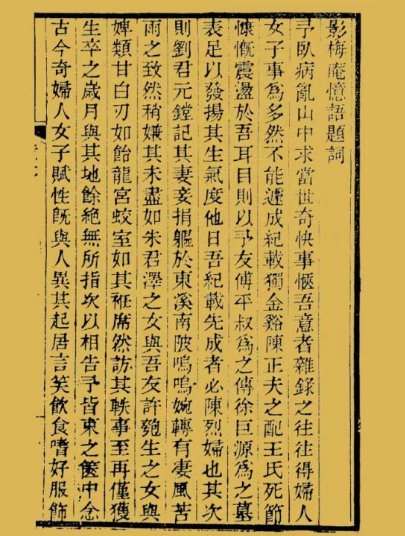 影梅庵憶語題詞
予臥病亂山中求當世奇快事愜吾意者雜錄之往往得婦人
女子事為多然不能遽成紀載獨金谿陳正夫之配王氏死節
慷慨震盪於吾耳目則以予友傅平叔為之傳徐巨源為之墓
表足以發揚其生氣度他日吾紀載先成者必陳烈婦也其次
則劉君元鏜記其妻妾捐軀於東溪南陂嗚嗚婉轉有淒風苦
雨之致然稍嫌其未盡如朱君澤之女與吾友許𡖖生之女與
婢類甘白刃如飴龍宮蛟室如其袵席然訪其軼事至再僅獲
生卒之歲月與其地餘絕無所指次以相告予皆束之篋中念
古今奇婦人女子賦性既與人異其起居言笑飲食嗜好服飾